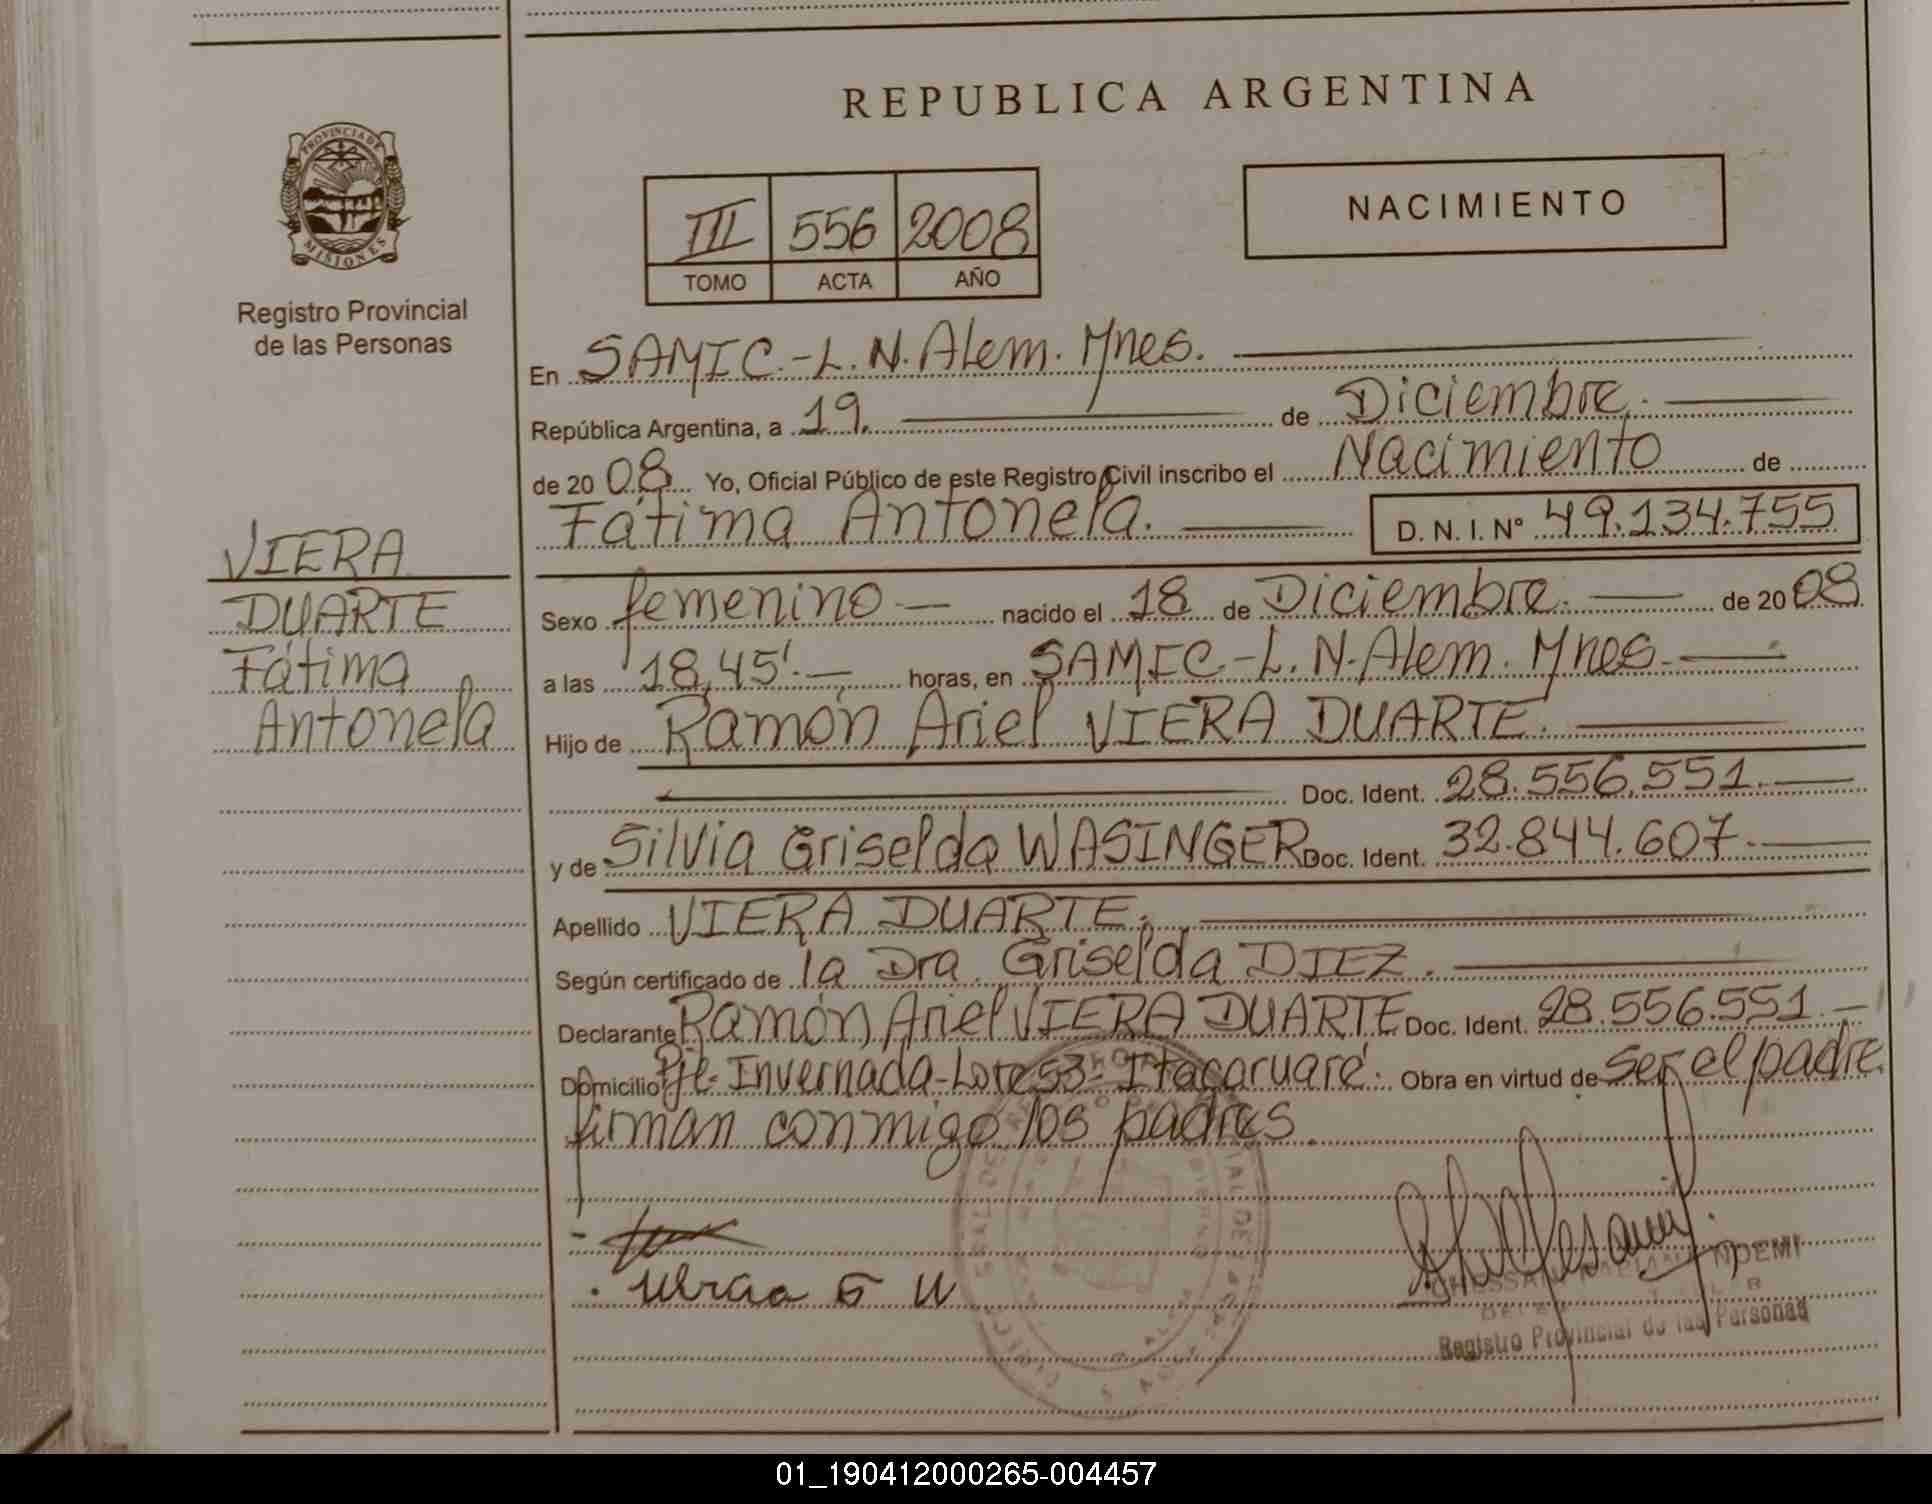 REPUBLICA ARGENTINA
PROVINCIA DE
MISIONES
Registro Provincial
de las Personas
III 556 2008
TOMO ACTA AÑO
NACIMIENTO
En SAMIC.-L.N.Alem. Mnes.
República Argentina, a 19. de Diciembre.
de 2008 Yo, Oficial Público de este Registro Civil inscribo el Nacimiento de
Fátima Antonela. D. N. I. Nº 49.134.755
VIERA
DUARTE
Fátima
Antonela
Sexo femenino nacido el 18 de Diciembre. de 2008
a las 18,45'. horas, en SAMIC.-L.N.Alem. Mnes.
Hijo de Ramón Ariel VIERA DUARTE.
Doc. Ident. 28.556.551.
y de Silvia Griselda WASINGER Doc. Ident. 32.844.607.
Apellido VIERA DUARTE.
Según certificado de la Dra. Griselda DIEZ.
Declarante Ramón Ariel VIERA DUARTE Doc. Ident. 28.556.551.-
Domicilio Pje. Invernada-Lote 53- Itacaruaré. Obra en virtud de ser el padre.
firman conmigo los padres.
NOEMI
Registro Provincial de las Personas
01_190412000265-004457